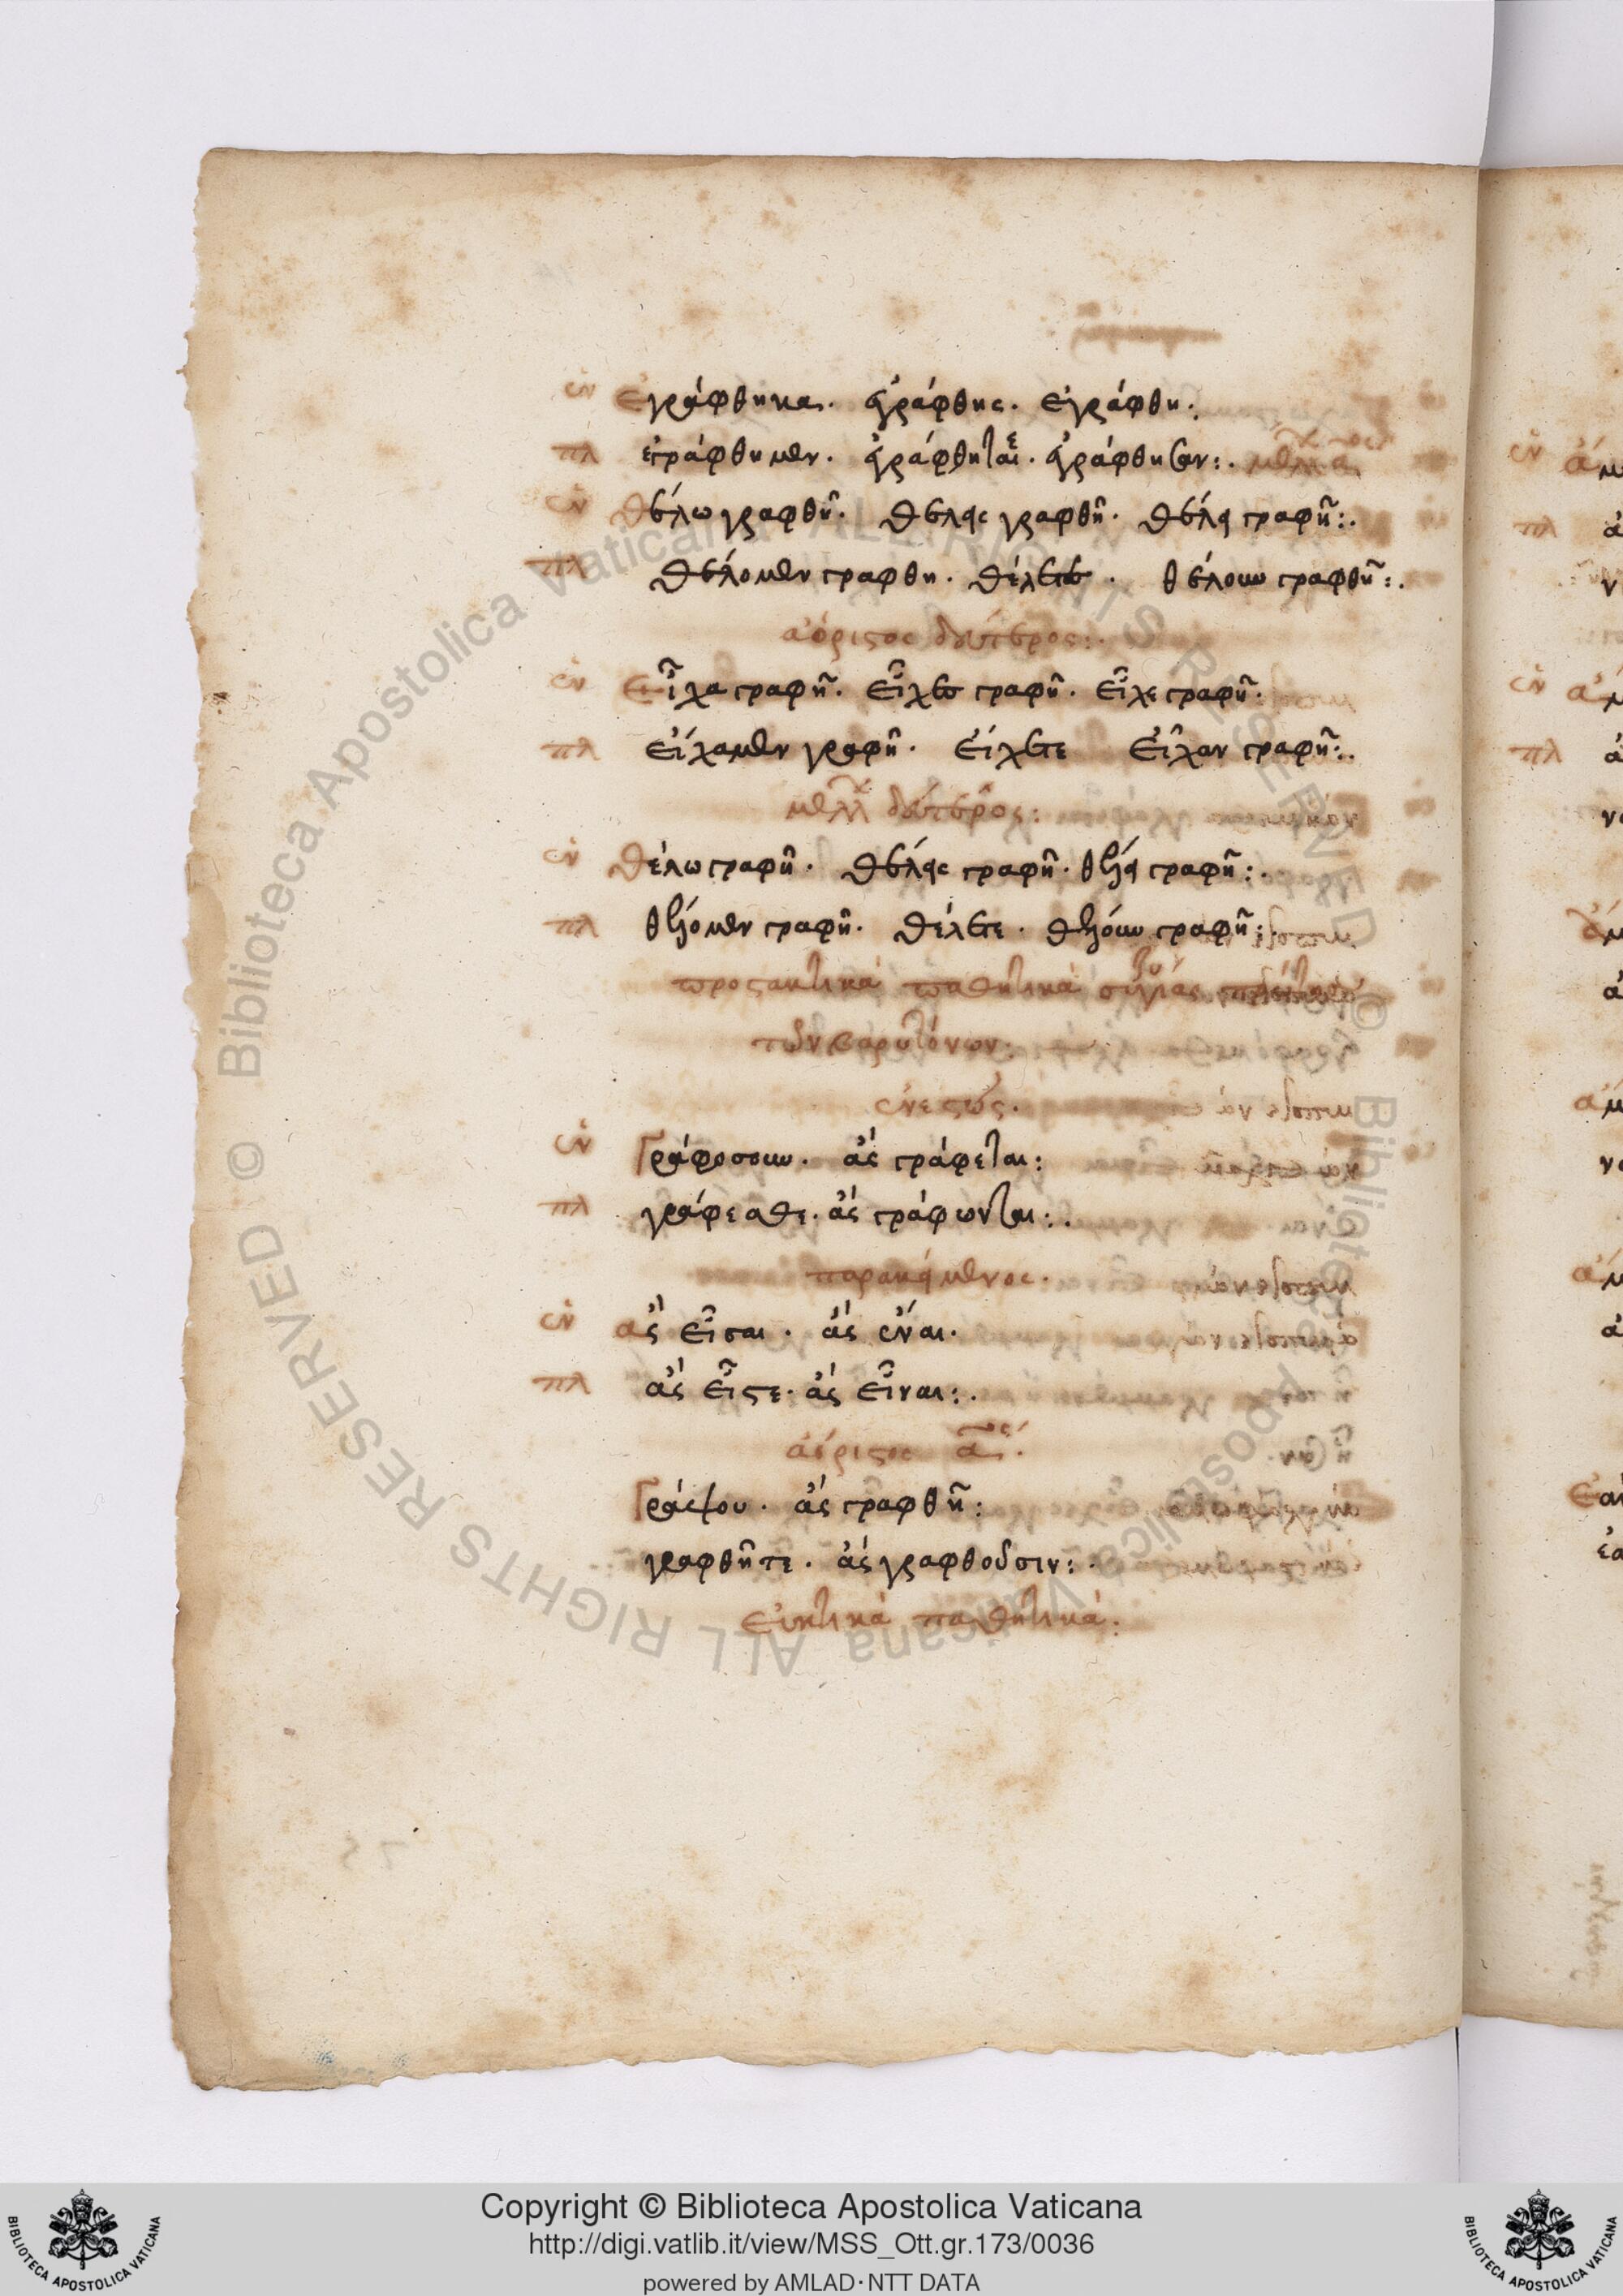 ἑν ἐγράφθηκα. ἐγράφθης. ἐγράφθη.
πλ ἐγράφθημεν. ἐγράφθηται. ἐγράφθησαν:. μέλλ αος
ἑν θέλω γραφθῆ. θέλεις γραφθῆ. θέλει γραφῆ:.
πλ θέλομεν γραφθη. θέλετε. θέλουν γραφθῆ:.
ἀόριστος δεύτερος:.
ἑν Εἶχα γραφῆ. εἶχες γραφῆ. εἶχε γραφῆ.
πλ εἴχαμεν γραφῆ. εἴχετε εἶχαν γραφῆ:.
μέλλ δεύτερος:
ἑν θέλω γραφῆ. θέλεις γραφῆ. θέλει γραφῆ:.
πλ θέλομεν γραφῆ. θέλετε. θέλουν γραφῆ:.
προστακτικά παθητικά συζυγίας
τῶν βαρυτόνων.
ἐνεστώς.
ἑν Γράφοσουν. ἀς γράφεται:
πλ γράφεσθε. ἀς γράφωνται:.
παρακείμενος.
ἑν ἀς εἶσαι. ἀς ἔναι.
πλ ἀς εἶστε. ἀς εἶναι:.
ἀόριστος αος.
Γράψου. ἀς γραφθῆ:
γραφθῆτε. ἀς γραφθοῦσιν:.
εὐκτικά παθητικά:
Copyright © Biblioteca Apostolica Vaticana
http://digi.vatlib.it/view/MSS_Ott.gr.173/0036
powered by AMLAD·NTT DATA